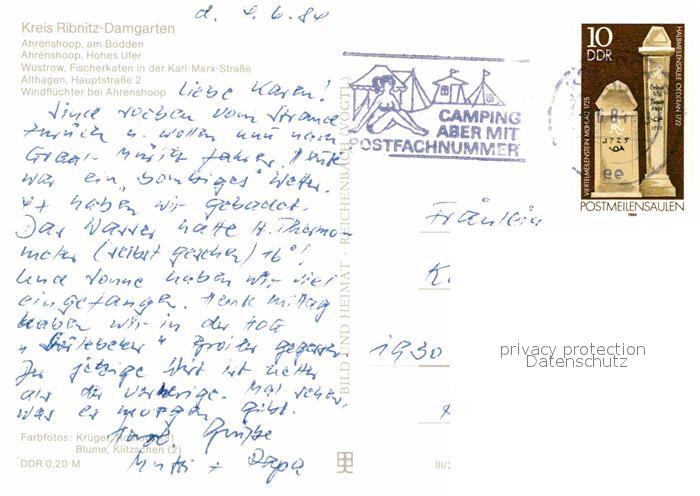 d. 4.6.84
Kreis Ribnitz-Damgarten
Ahrenshoop, am Bodden
Ahrenshoop, Hohes Ufer
Wustrow, Fischerkaten in der Karl-Marx-Straße
Althagen, Hauptstraße 2
Windflüchter bei Ahrenshoop
Liebe Karen!
Sind soeben vom Strande
zurück u. wollen nun nach
Graal-Müritz fahren. Heute
war ein „bombiges" Wetter.
4x haben wir gebadet.
Das Wasser hatte lt. Thermo-
meter (selbst gesehen) 16°!
Und Sonne haben wir viel
eingefangen. Heute mittag
haben wir in der HOG
" Broiler gegessen
Der jetzige Wirt ist netter
als der vorherige. Mal sehen,
was es morgen gibt.
Herzl. Grüße
Mutti + Papa
Farbfotos: Krüger,
Blume, Klitzschen (2)
DDR 0,20 M
BILD UND HEIMAT · REICHENBACH (VOGTL)
III/
CAMPING
ABER MIT
POSTFACHNUMMER
10
DDR
VIERTELMEILENSTEIN MÜHLAU 1725
HALBMEILENSÄULE OEDERAN 1722
POSTMEILENSÄULEN
1984
Fräulein
K.
1930
privacy protection
Datenschutz